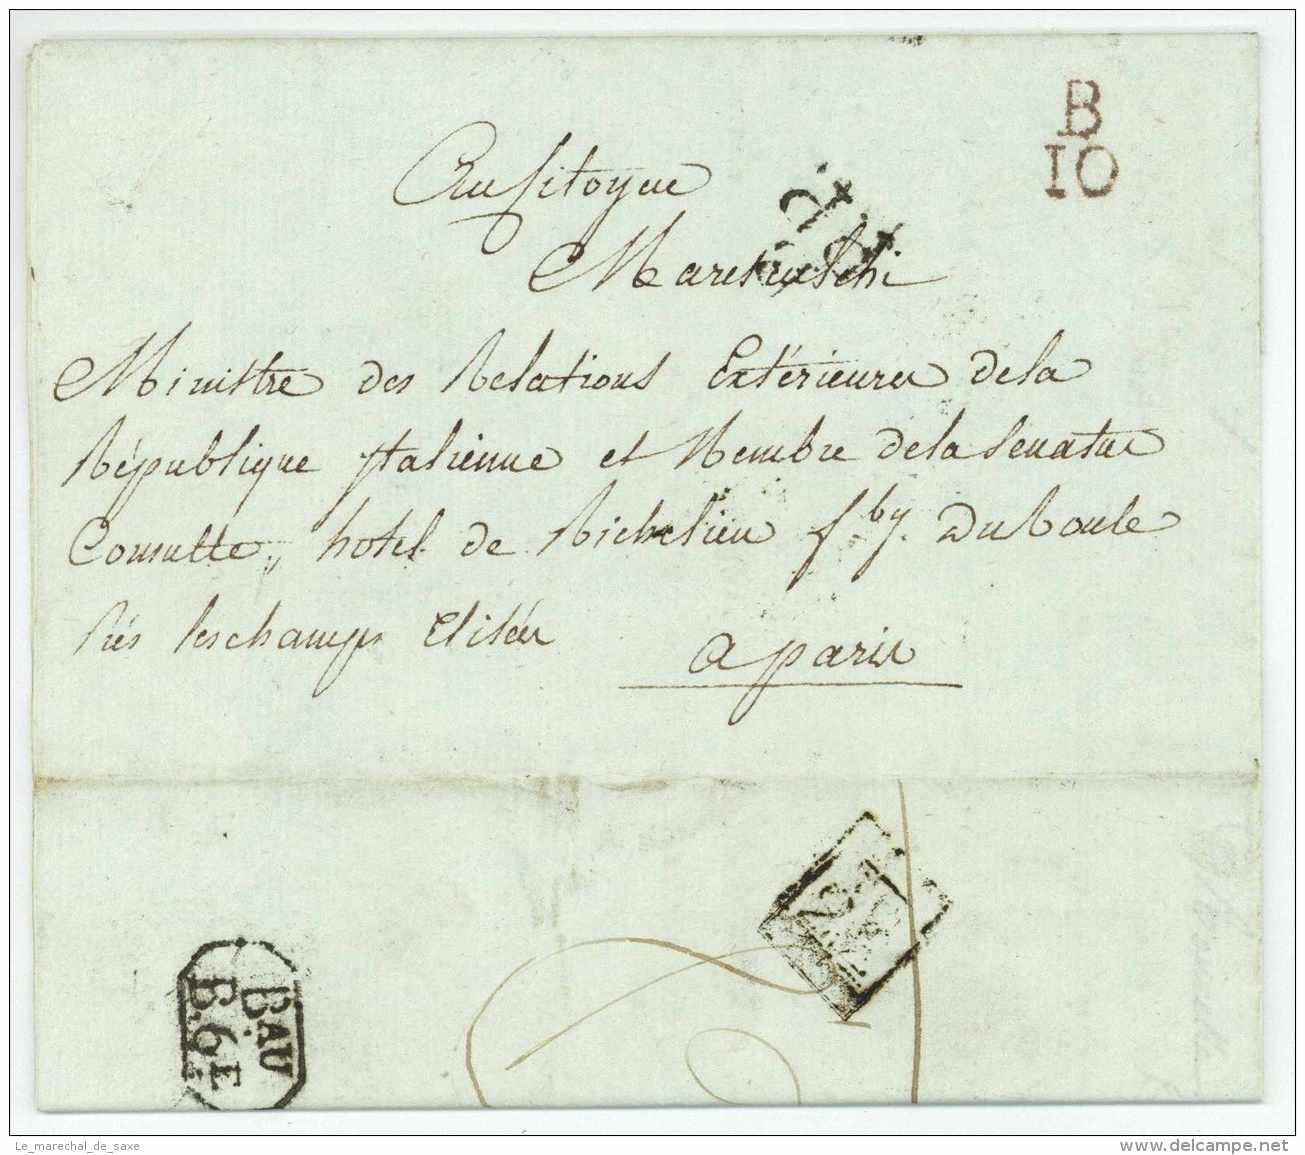 B
10
Au Citoyen
Marescalchi
Ministre des Relations Extérieures de la
République jtalienne et Membre de la Senatus
Consulte, hotel de Richelieu fbg. Du Roule
Prés les champs Elisées
a paris
B.AU
B.6E
Le_marechal_de_saxe
www.delcampe.net